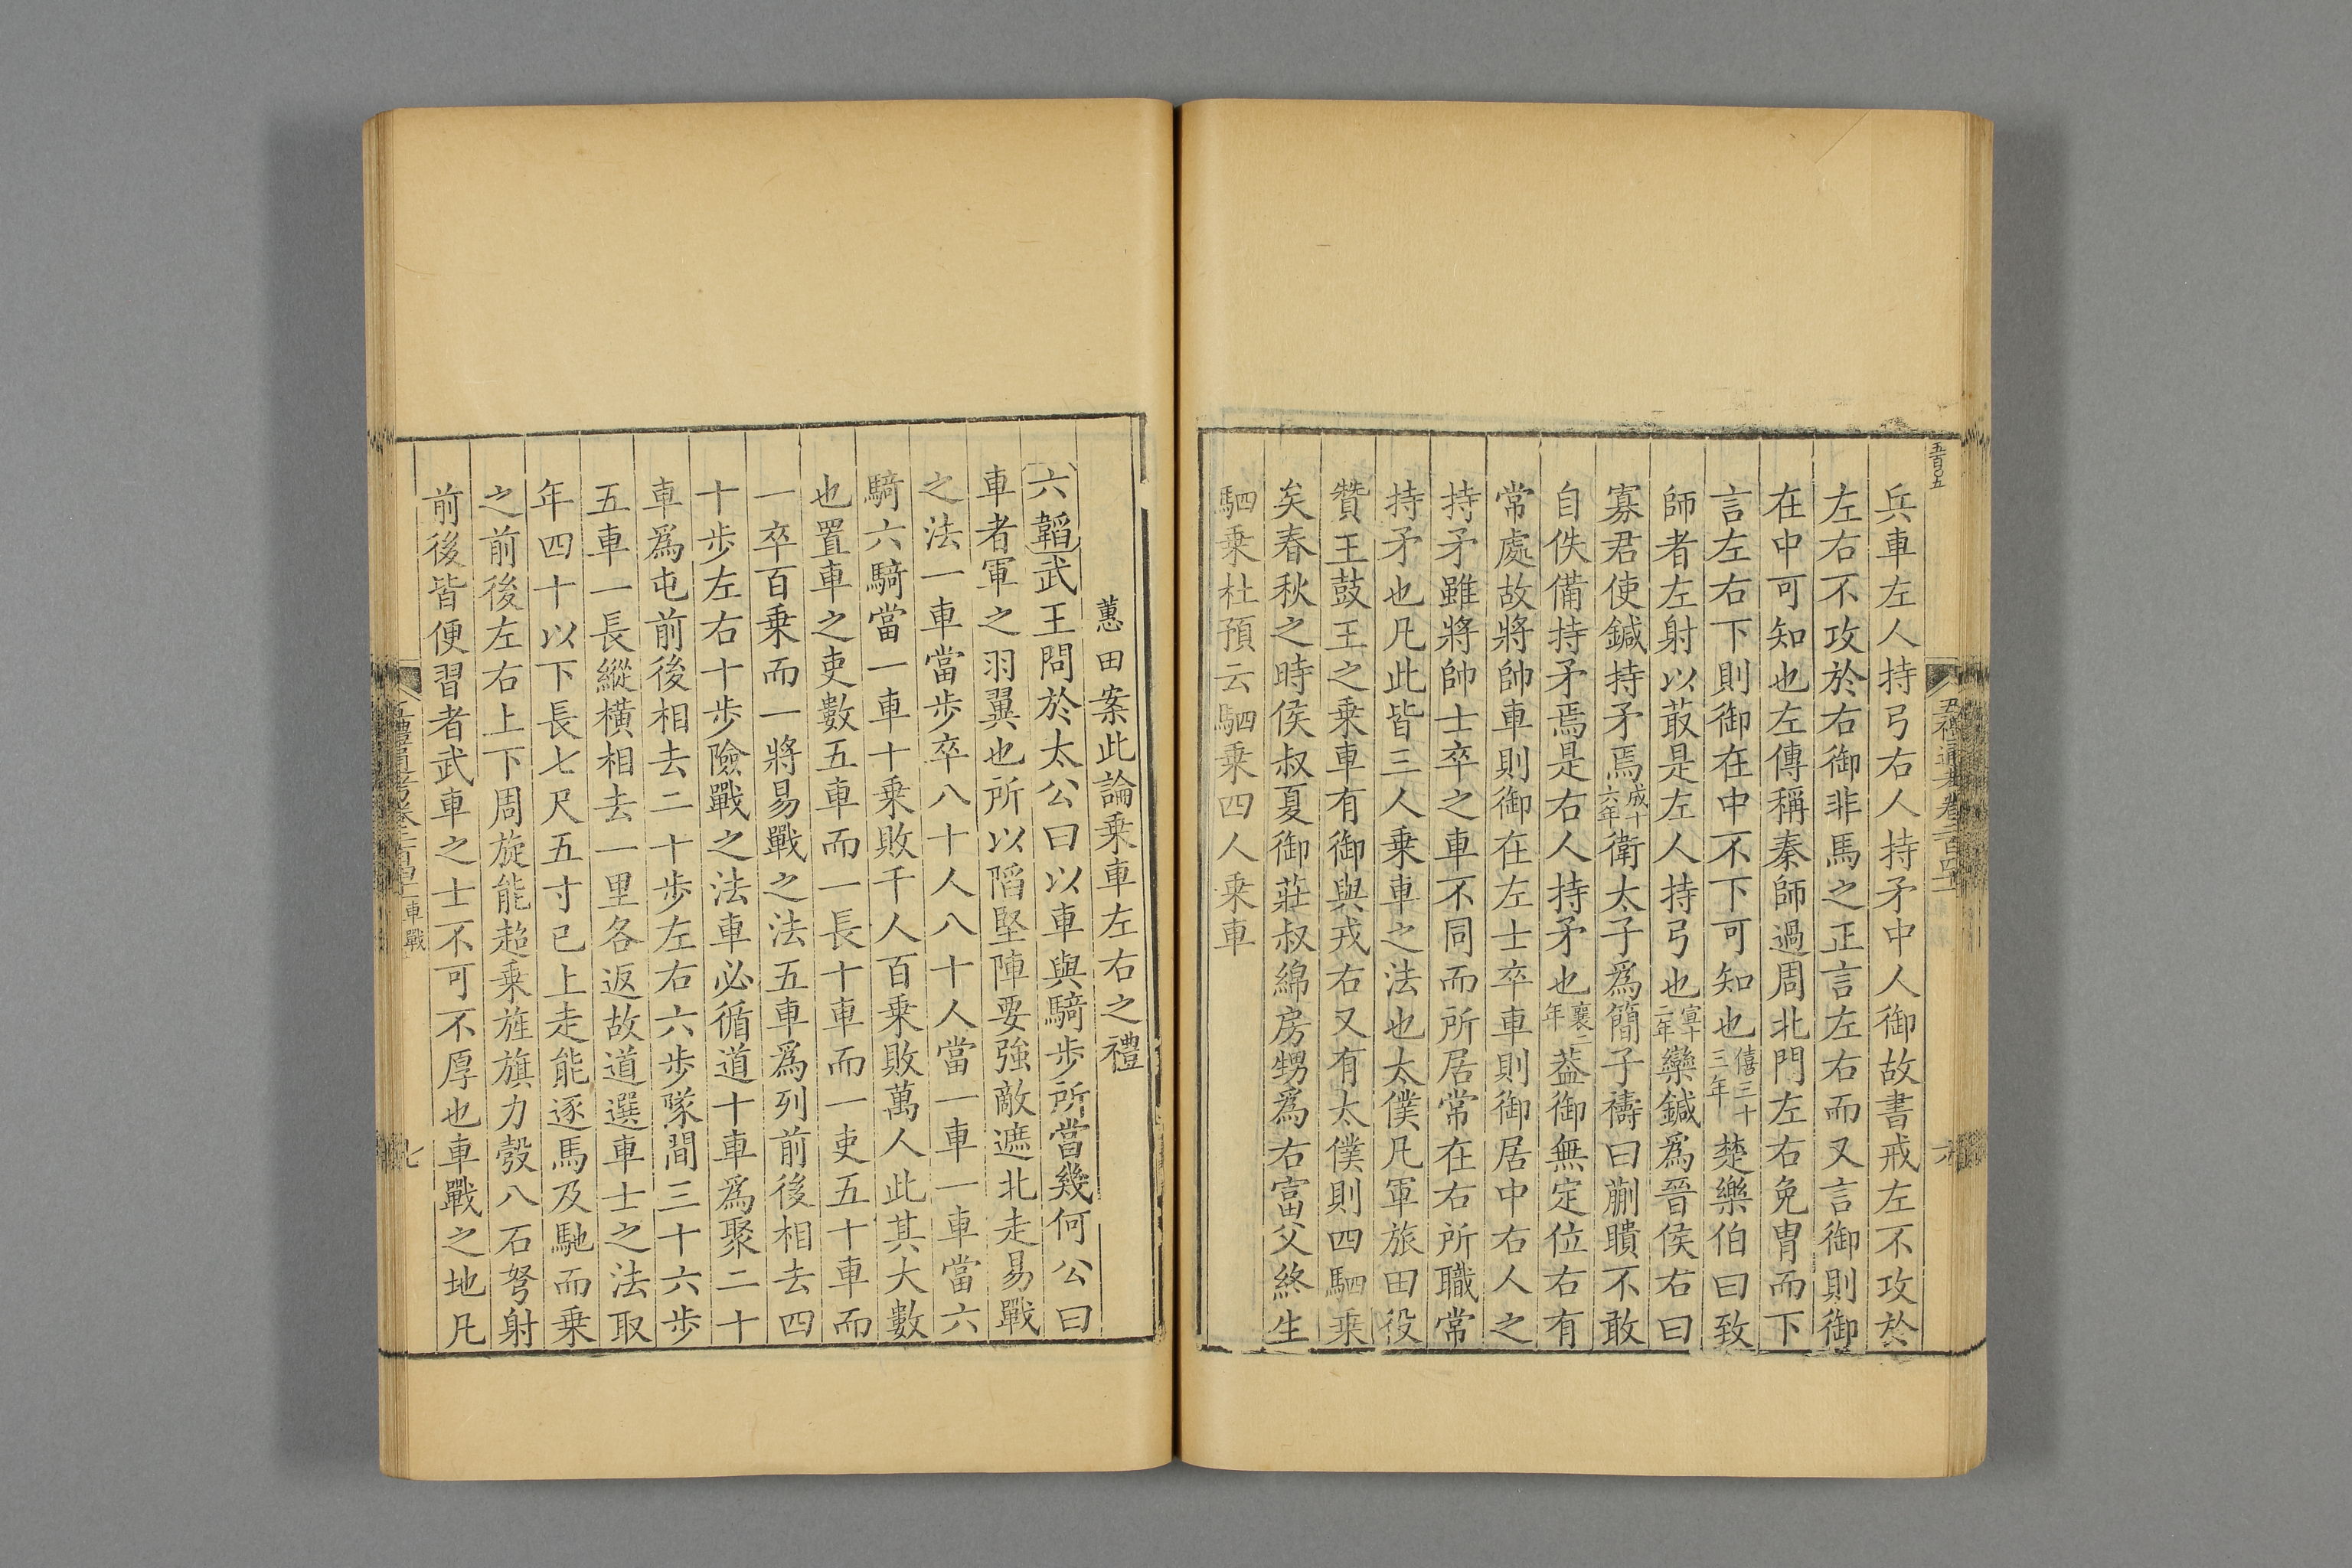 五百○五
兵車左人持弓右人持矛中人御故書戒左不攻於
左右不攻於右御非馬之正言左右而又言御則御
在中可知也左傳稱秦師過周北門左右免胄而下
言左右下則御在中不下可知也僖三十三年楚樂伯曰致
師者左射以菆是左人持弓也宣十二年欒鍼爲晉侯右曰
寡君使鍼持矛焉成十六年衛太子爲簡子禱曰蒯聵不敢
自佚備持矛焉是右人持矛也襄二年葢御無定位右有
常處故將帥車則御在左士卒車則御居中右人之
持矛雖將帥士卒之車不同而所居常在右所職常
持矛也凡此皆三人乘車之法也太僕凡軍旅田役
贊王鼓王之乘車有御與戎右又有太僕則四駟乘
矣春秋之時侯叔夏御莊叔綿房甥爲右富父終生
駟乘杜預云駟乘四人乘車
蕙田案此論乘車左右之禮
六韜武王問於太公曰以車與騎步所當幾何公曰
車者軍之羽翼也所以陷堅陣要強敵遮北走易戰
之法一車當步卒八十人八十人當一車一車當六
騎六騎當一車十乘敗千人百乘敗萬人此其大數
也置車之吏數五車而一長十車而一吏五十車而
一卒百乘而一將易戰之法五車爲列前後相去四
十步左右十步險戰之法車必循道十車爲聚二十
車爲屯前後相去二十步左右六步隊間三十六步
五車一長縱橫相去一里各返故道選車士之法取
年四十以下長七尺五寸已上走能逐馬及馳而乘
之前後左右上下周旋能超乘旌旗力彀八石弩射
前後皆便習者武車之士不可不厚也車戰之地凡
車戰
七